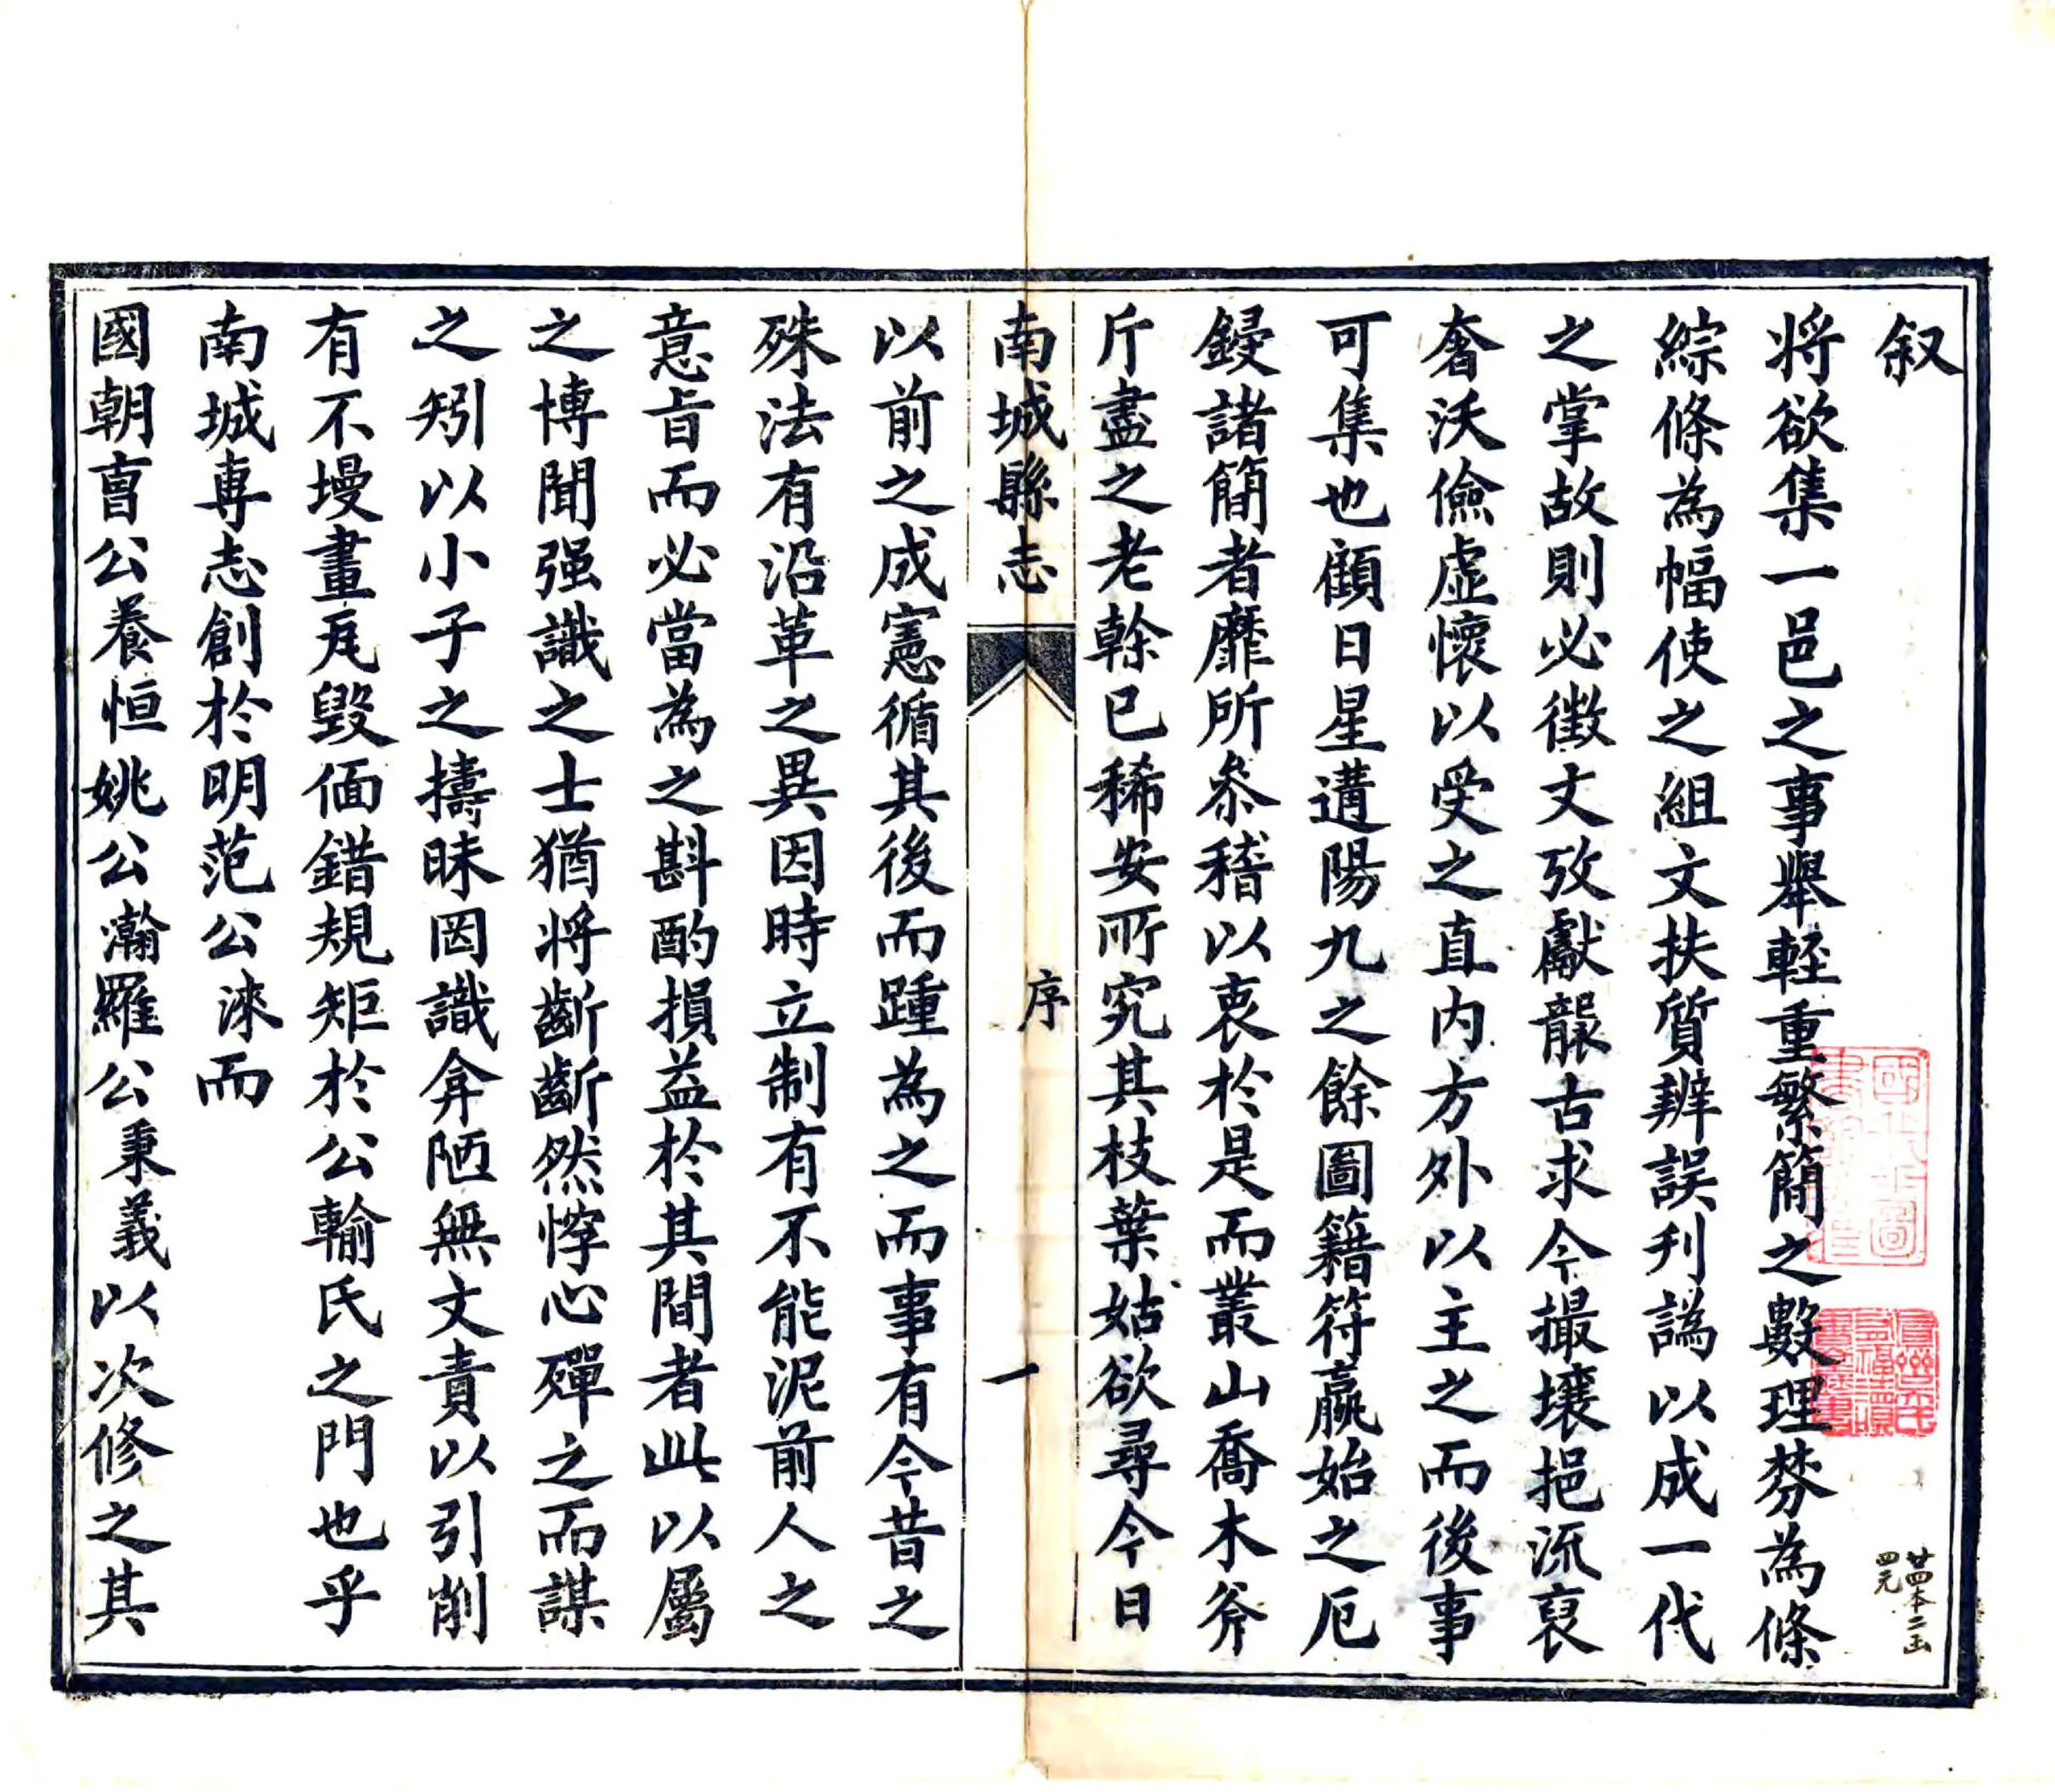 叙
将欲集一邑之事舉輕重繁簡之數理棼為條
綜條為幅使之組文扶質辨誤刋譌以成一代
之掌故則必徵文攷獻龈古求今撮壤挹流裒
奢沃儉虛懷以受之直内方外以主之而後事
可集也顧日星遘陽九之餘圖籍符嬴始之厄
鋟諸簡者靡所叅稽以衷於是而叢山喬木斧
斤盡之老榦已稀安所究其枝葉姑欲尋今日
南城縣志
序
一
以前之成憲循其後而踵為之而事有今昔之
殊法有沿革之異因時立制有不能泥前人之
意旨而必當為之斟酌損益於其間者此以屬
之博聞强識之士猶将齗齗然惇心殫之而謀
之矧以小子之擣昧罔識弇陋無文責以引削
有不墁畫𤬪毀偭錯規矩於公輸氏之門也乎
南城專志創於明范公淶而
國朝曺公養恒姚公瀚羅公秉義以次修之其
廿四本二函
四元